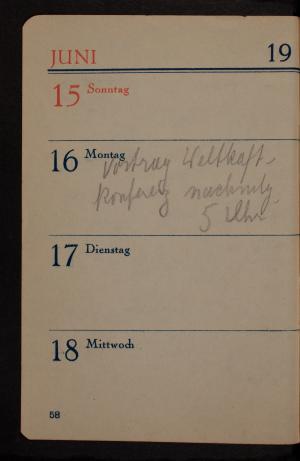 JUNI 19
15 Sonntag
16 Montag
Vortrag Weltkraft-
Konferenz nachmitg.
5 Uhr
17 Dienstag
18 Mittwoch
58